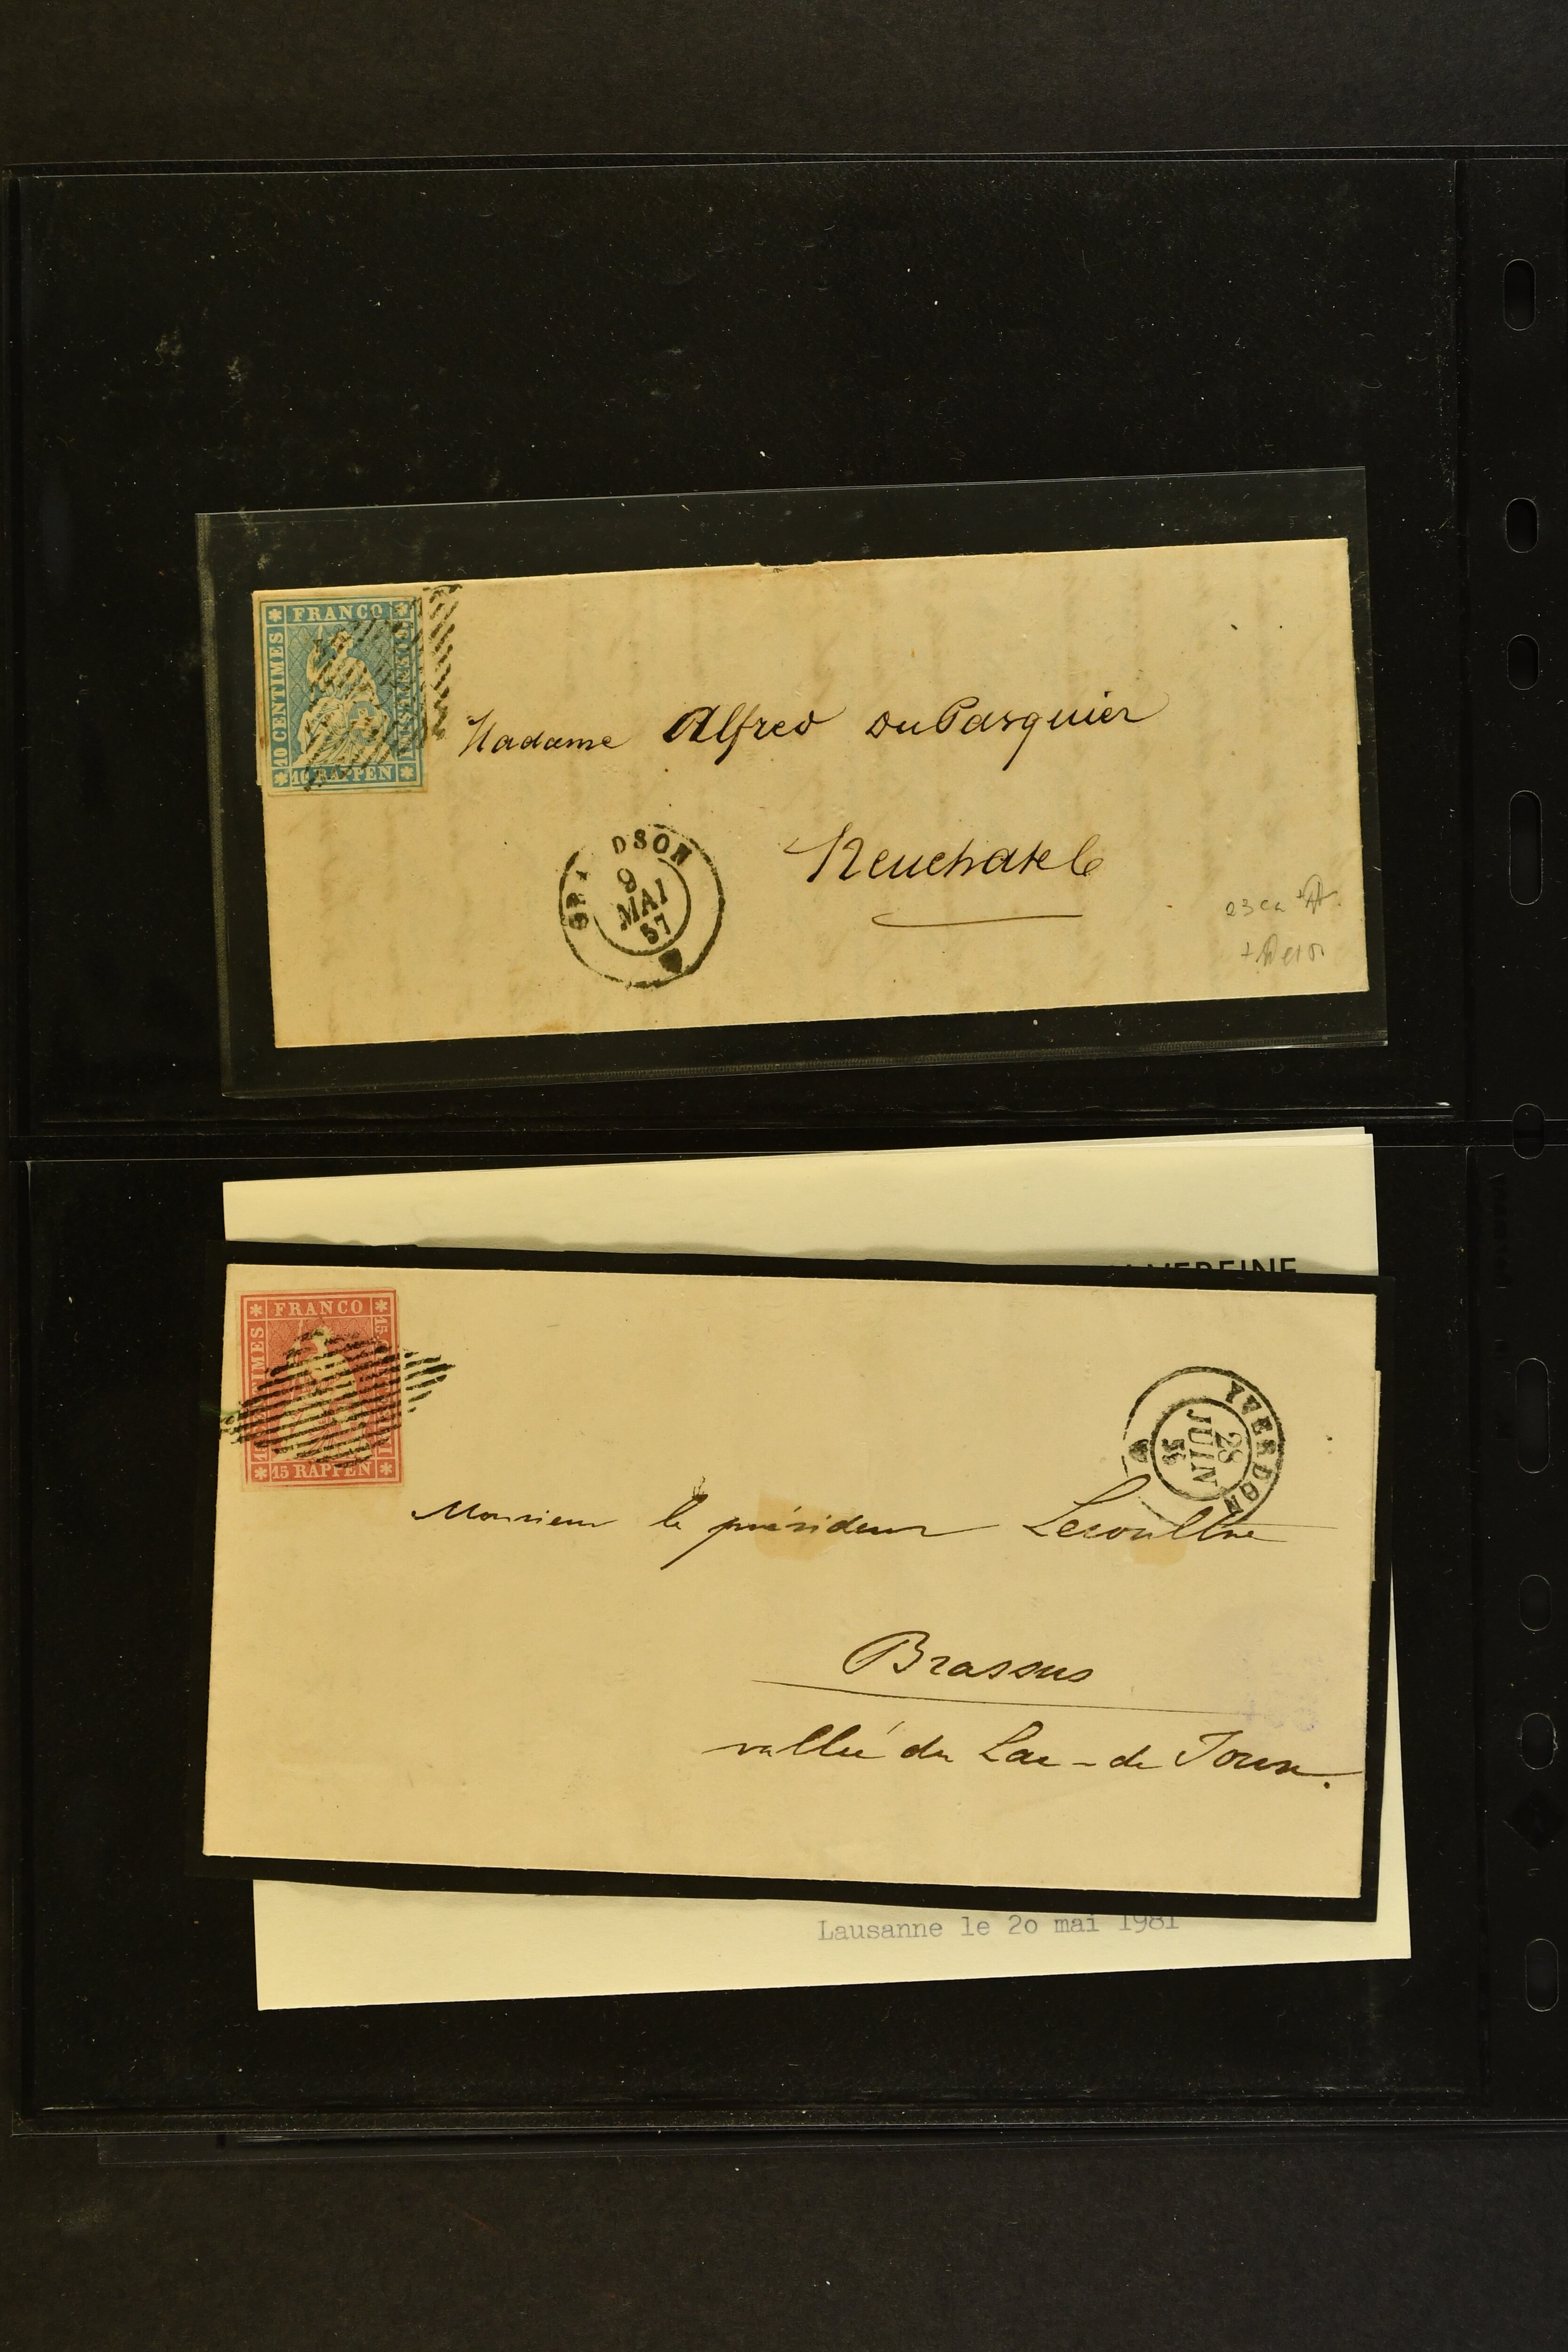 FRANCO
10 CENTIMES
10 RAPPEN
Madame Alfred DuPasquier
Neuchatel
DSON
9
MAI
57
23
VEREINE
FRANCO
15 RAPPEN
YVERDON
28
JUIN
Monsieur le président Lecoultre
Brassus
vallée du Lac-de Joux.
Lausanne le 20 mai 1981